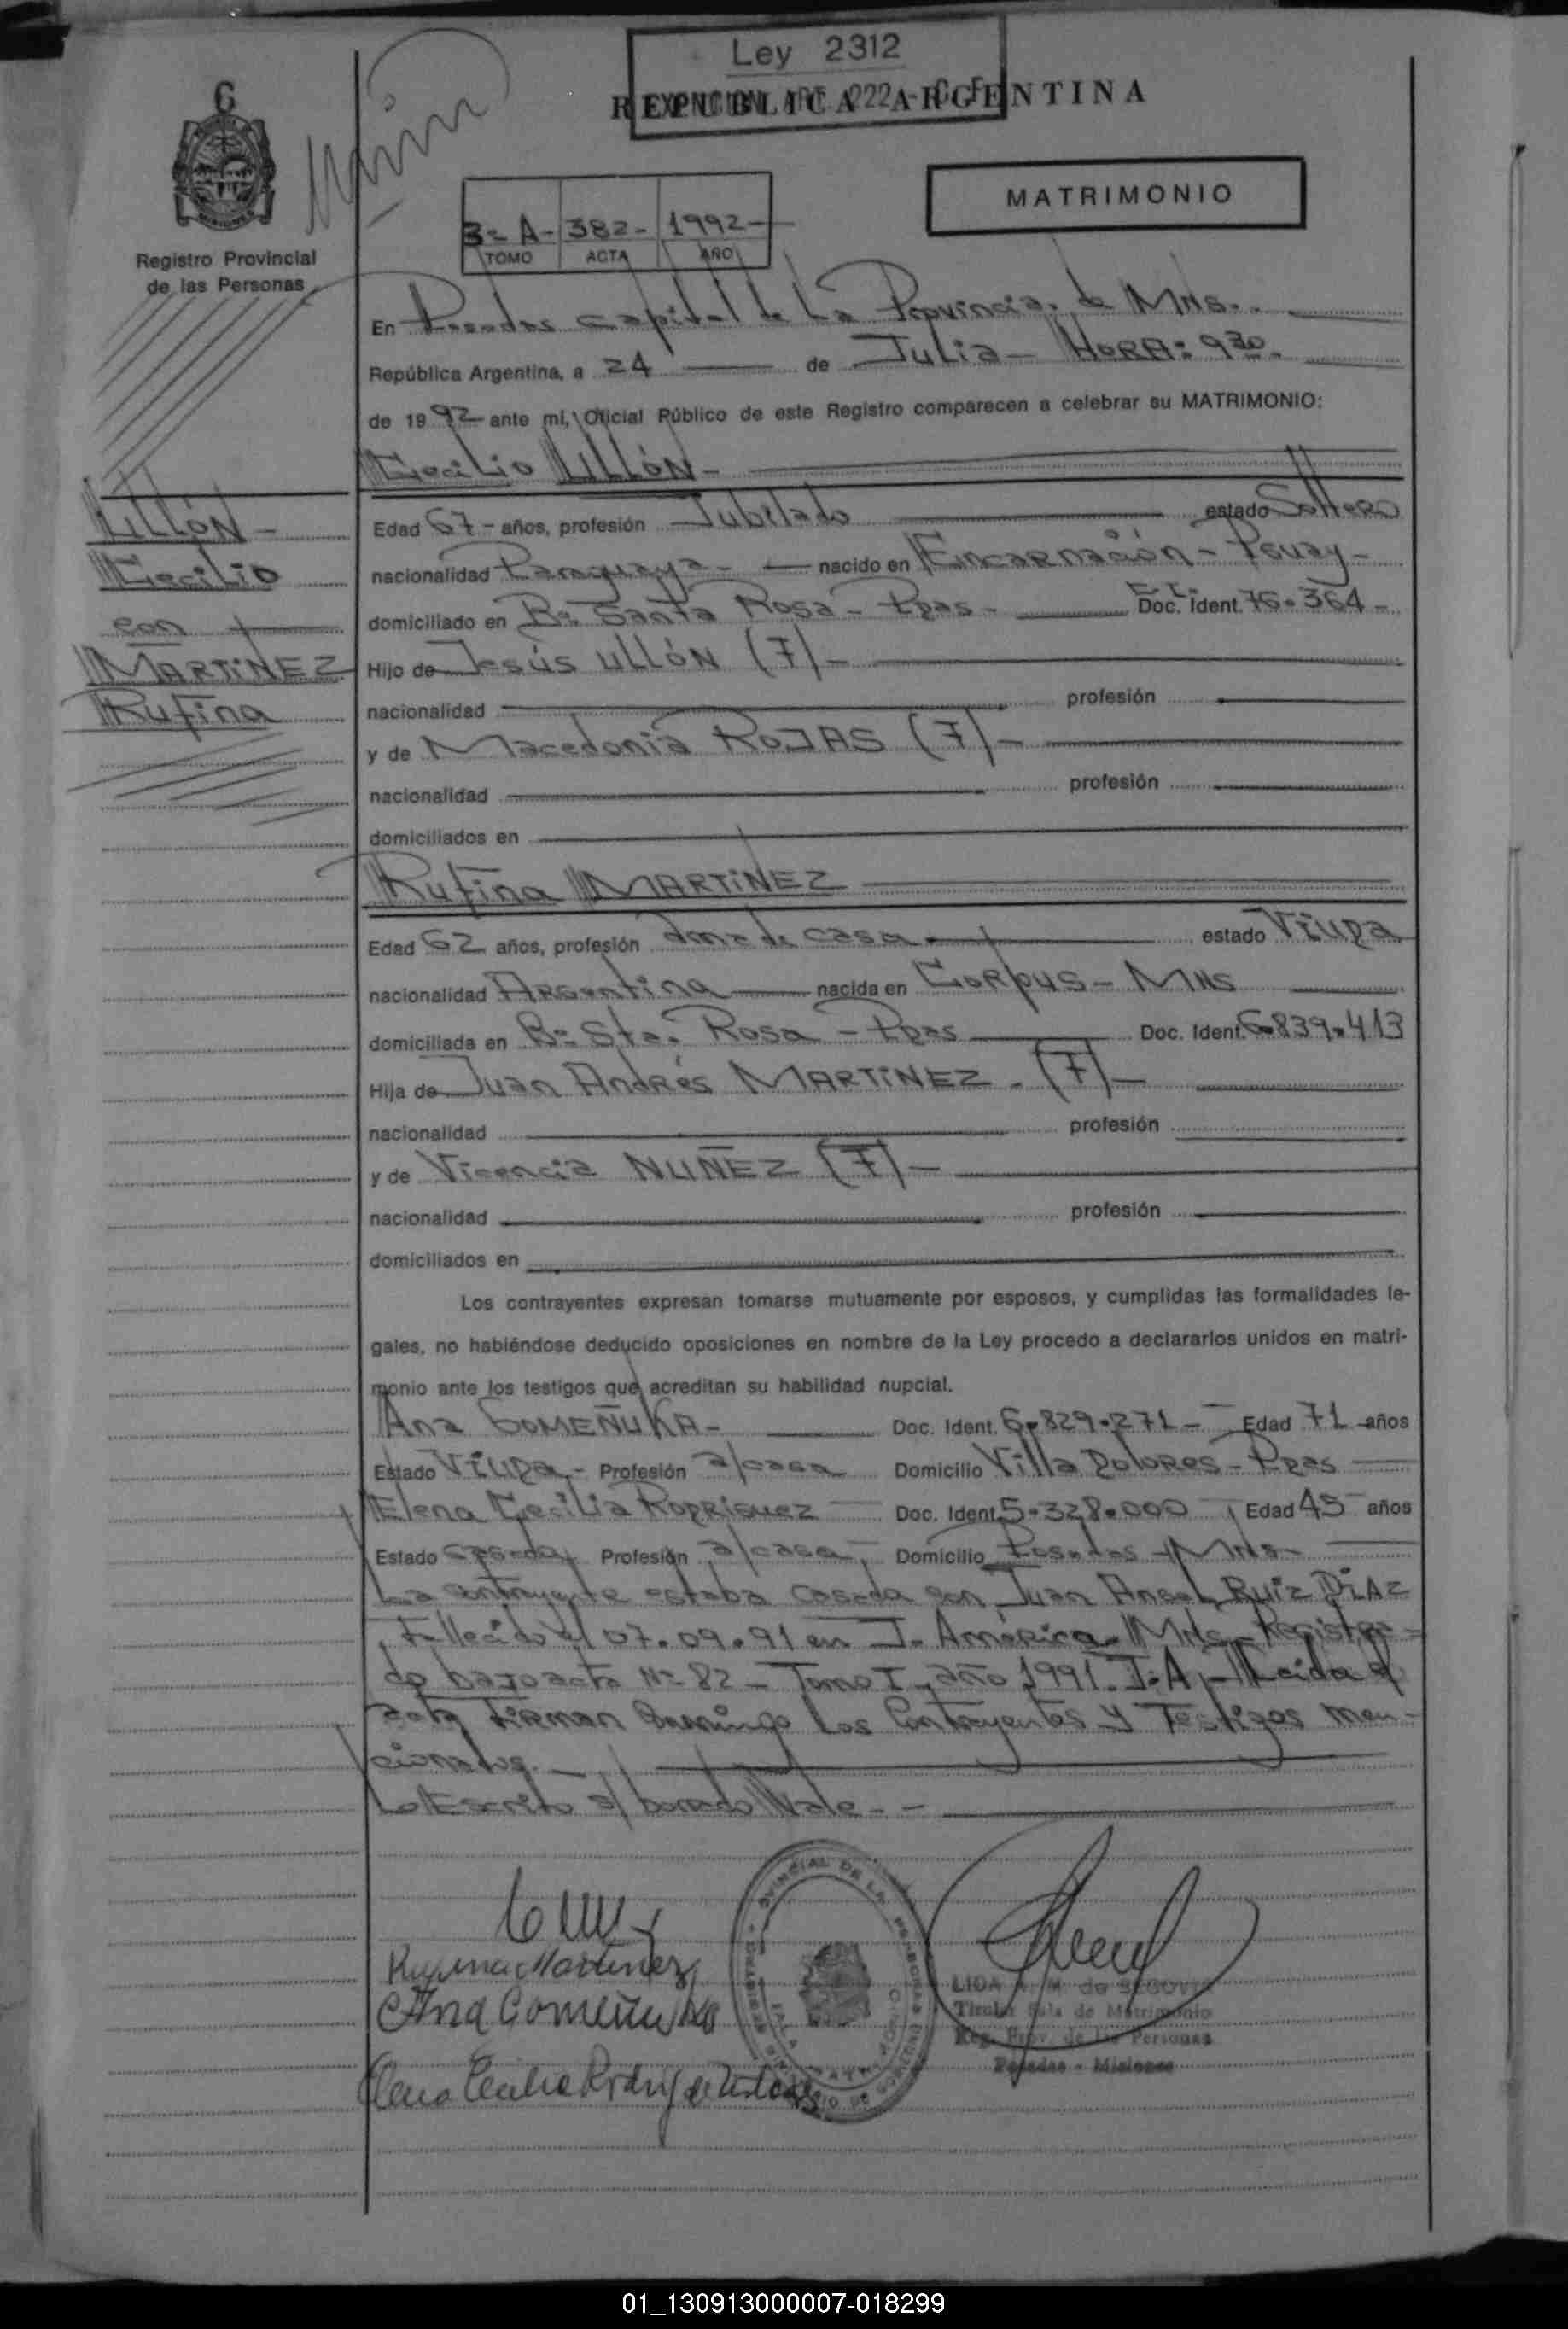 Ley 2312
REPUBLICA ARGENTINA
MATRIMONIO
3= A- 382- 1992-
TOMO ACTA AÑO
Registro Provincial
de las Personas
En Posadas capital de La Provincia de MNS.
República Argentina, a 24 de Julio - HORA: 930.
de 1992 ante mi, Oficial Público de este Registro comparecen a celebrar su MATRIMONIO:
Cecilio ULLÓN-
ULLÓN-
Cecilio
con
MARTINEZ
Rufina
Edad 67- años, profesión Jubilado estado Soltero
nacionalidad Paraguaya- nacido en Encarnación - Pguay-
domiciliado en Bº Santa Rosa - Ppas- C.I. Doc. Ident. 76.364-
Hijo de Jesús ULLÓN (F)-
nacionalidad profesión
y de Macedonia ROJAS (F)-
nacionalidad profesión
domiciliados en
Rufina MARTINEZ
Edad 62 años, profesión ama de casa estado Viuda
nacionalidad Argentina nacida en Corpus- MNS
domiciliada en Bº Sta. Rosa - Ppas Doc. Ident. 6.839.413
Hija de Juan Andrés MARTINEZ. (F)-
nacionalidad profesión
y de Vicencia NUÑEZ (F)-
nacionalidad profesión
domiciliados en
Los contrayentes expresan tomarse mutuamente por esposos, y cumplidas las formalidades le-
gales, no habiéndose deducido oposiciones en nombre de la Ley procedo a declararlos unidos en matri-
monio ante los testigos que acreditan su habilidad nupcial.
Ana GOMEÑUKA- Doc. Ident. 6.829.271- Edad 71 años
Estado Viuda- Profesión a/casa Domicilio Villa Dolores- Ppas
Elena Cecilia RODRIGUEZ Doc. Ident. 5.328.000 Edad 45 años
Estado Casada Profesión a/casa, Domicilio Posadas - Mns-
La contrayente estaba casada con Juan Angel RUIZ DIAZ
, Fallecido el 07.09.91 en J. América - Mns- Registra-
do bajo acta Nº 82 - Tomo I - año 1991. J.A- Leida el
acta Firman conmigo los Contrayentes y Testigos men-
cionados.-
Lo Escrito s/ borrado Vale.-
Rufina Martinez
Ana Gomeñuka
Elena Cecilia Rodrig de
LIDA A. M. de SEGOVIA
Titular Sala de Matrimonio
Reg. Prov. de las Personas
Posadas - Misiones
01_130913000007-018299